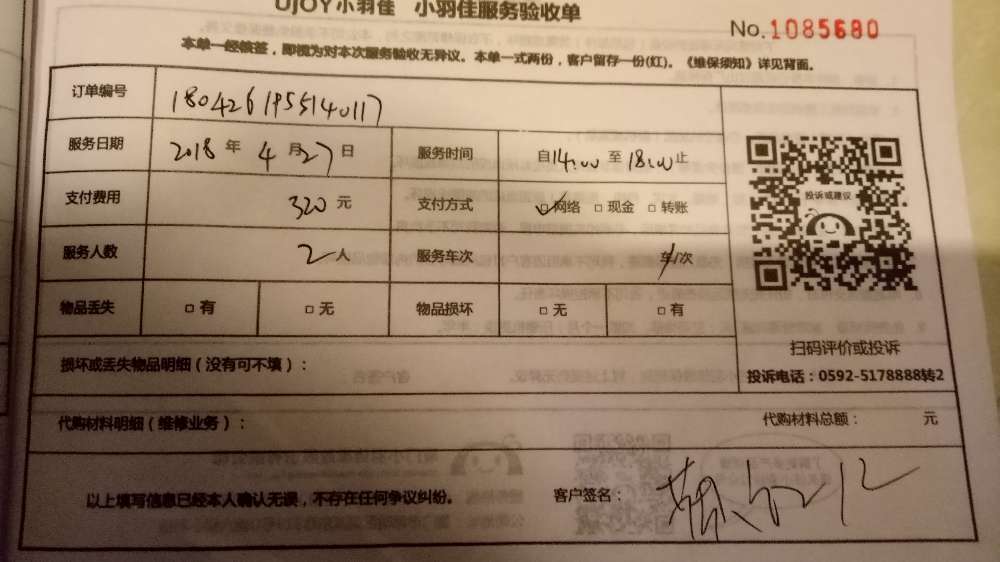 UJOY小羽佳 小羽佳服务验收单
No.1085680
本单一经核签，即视为对本次服务验收无异议。本单一式两份，客户留存一份(红)。《维保须知》详见背面。
订单编号 180426195514 0117
服务日期 2018 年 4 月 27 日 服务时间 自14:00 至 18:00 止
支付费用 320 元 支付方式 ☑网络 □现金 □转账
投诉或建议
服务人数 2 人 服务车次 车/次
物品丢失 □有 □无 物品损坏 □无 □有
扫码评价或投诉
损坏或丢失物品明细（没有可不填）：
投诉电话：0592-5178888转2
代购材料明细（维修业务）： 代购材料总额： 元
以上填写信息已经本人确认无误，不存在任何争议纠纷。 客户签名：